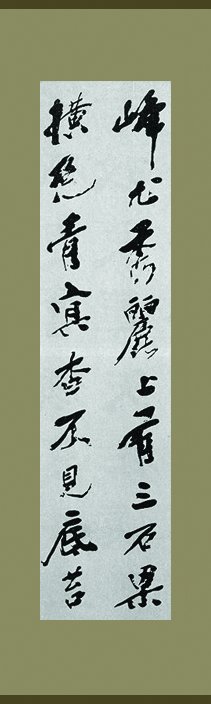 峰尤麗上有三石梁
橫絕青冥杳不見底苔